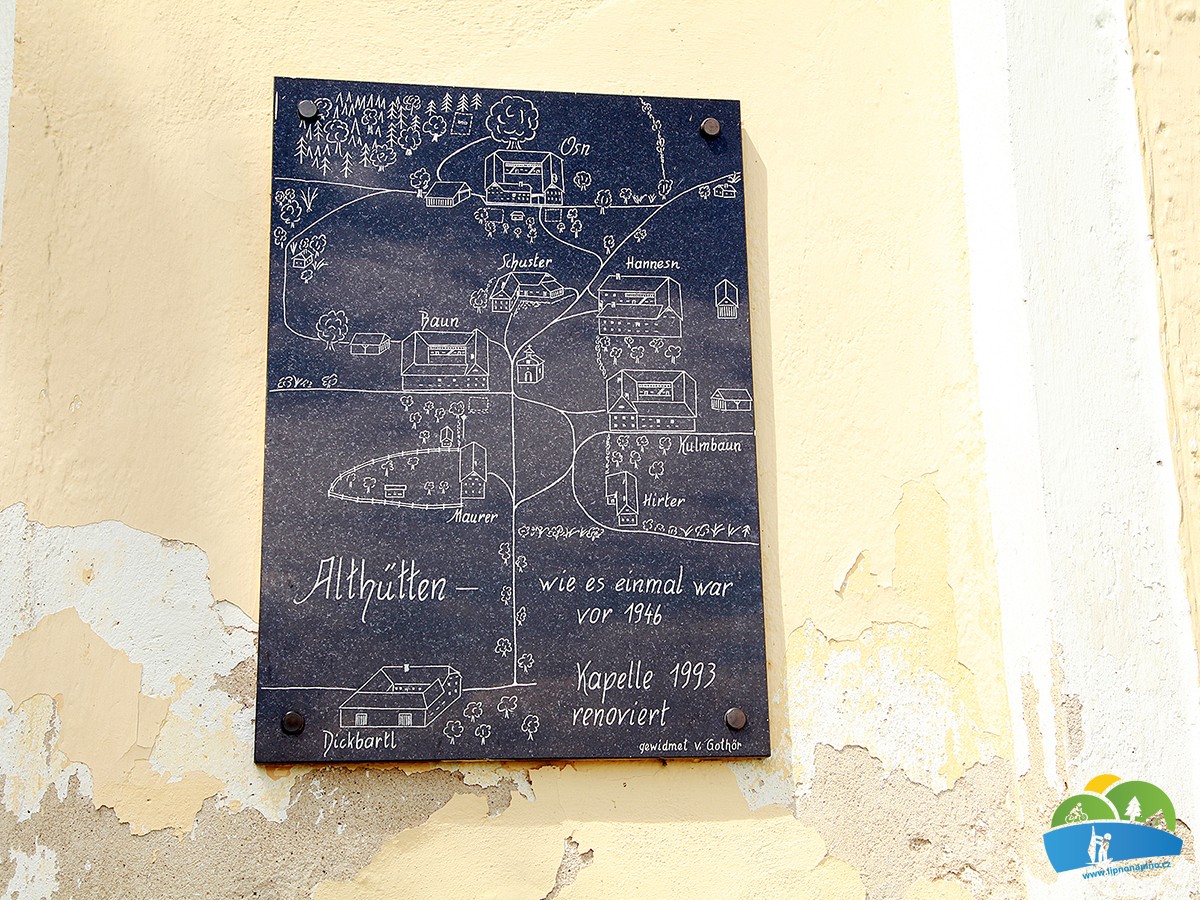 Osn
Schuster
Hannesn
Baun
Kulmbaun
Hirter
Maurer
Althütten –
wie es einmal war
vor 1946
Kapelle 1993
renoviert
Dickbartl
gewidmet v. Gothör
www.lipnonaplno.cz